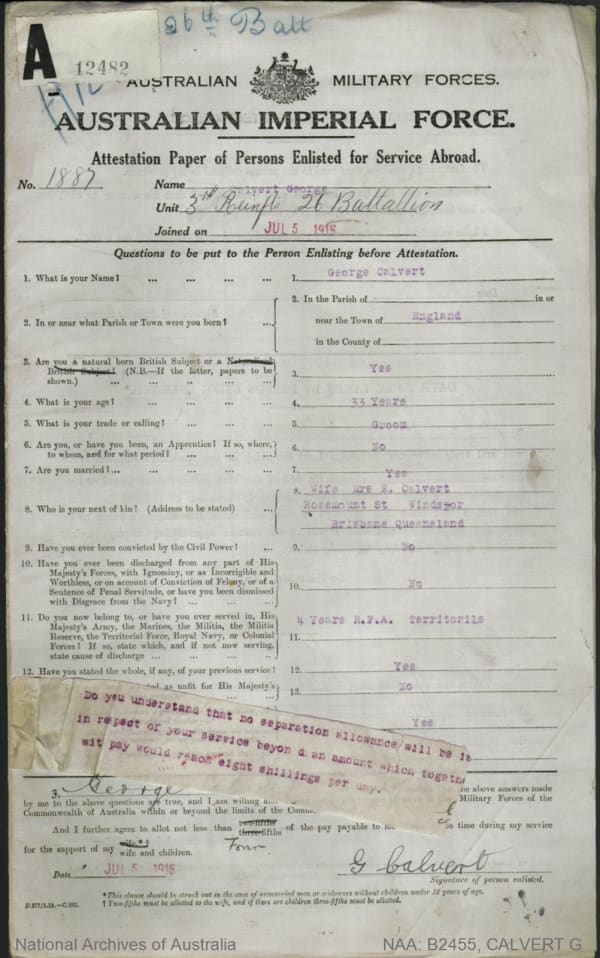 26th Batt
A
12482
AUSTRALIAN MILITARY FORCES.
AUSTRALIAN IMPERIAL FORCE.
Attestation Paper of Persons Enlisted for Service Abroad.
No. 1887 Name Calvert George
Unit 3rd Reinfts 26 Battallion
Joined on JUL 5 1915
Questions to be put to the Person Enlisting before Attestation.
1. What is your Name? ... ... ... ... 1. George Calvert
2. In or near what Parish or Town were you born? ... 2. In the Parish of in or
near the Town of England
in the County of
3. Are you a natural born British Subject or a Naturalised
British Subject? (N.B.—If the latter, papers to be
shown.) ... ... ... ... 3. Yes
4. What is your age? ... ... ... ... 4. 33 Years
5. What is your trade or calling? ... ... ... 5. Groom
6. Are you, or have you been, an Apprentice? If so, where,
to whom, and for what period? ... ... ... 6. No
7. Are you married?... ... ... ... ... 7. Yes
8. Who is your next of kin? (Address to be stated) ... 8. Wife Mrs E. Calvert
Rosemount St Windsor
Brisbane Queensland
9. Have you ever been convicted by the Civil Power? ... 9. No
10. Have you ever been discharged from any part of His
Majesty's Forces, with Ignominy, or as Incorrigible and
Worthless, or on account of Conviction of Felony, or of a
Sentence of Penal Servitude, or have you been dismissed
with Disgrace from the Navy? ... ... ... 10. No
11. Do you now belong to, or have you ever served in, His
Majesty's Army, the Marines, the Militia, the Militia
Reserve, the Territorial Force, Royal Navy, or Colonial
Forces? If so, state which, and if not now serving,
state cause of discharge ... ... ... 11. 4 Years R.F.A. Territorils
12. Have you stated the whole, if any, of your previous service? 12. Yes
as unfit for His Majesty's 13. No
Yes
Do you understand that no separation allowance will be is
in respect of your service beyon d an amount which togethe
wit pay would reach eight shillings per day.
3. George the above answers made
by me to the above questions are true, and I am willing Military Forces of the
Commonwealth of Australia within or beyond the limits of the Comm
And I further agree to allot not less than two-fifths three-fifths of the pay payable to to time during my service
for the support of my wife and children. Four
Date JUL 5 1915 G Calvert
Signature of person enlisted.
*This clause should be struck out in the case of unmarried men or widowers without children under 18 years of age.
† Two-fifths must be allotted to the wife, and if there are children three-fifths must be allotted.
National Archives of Australia NAA: B2455, CALVERT G